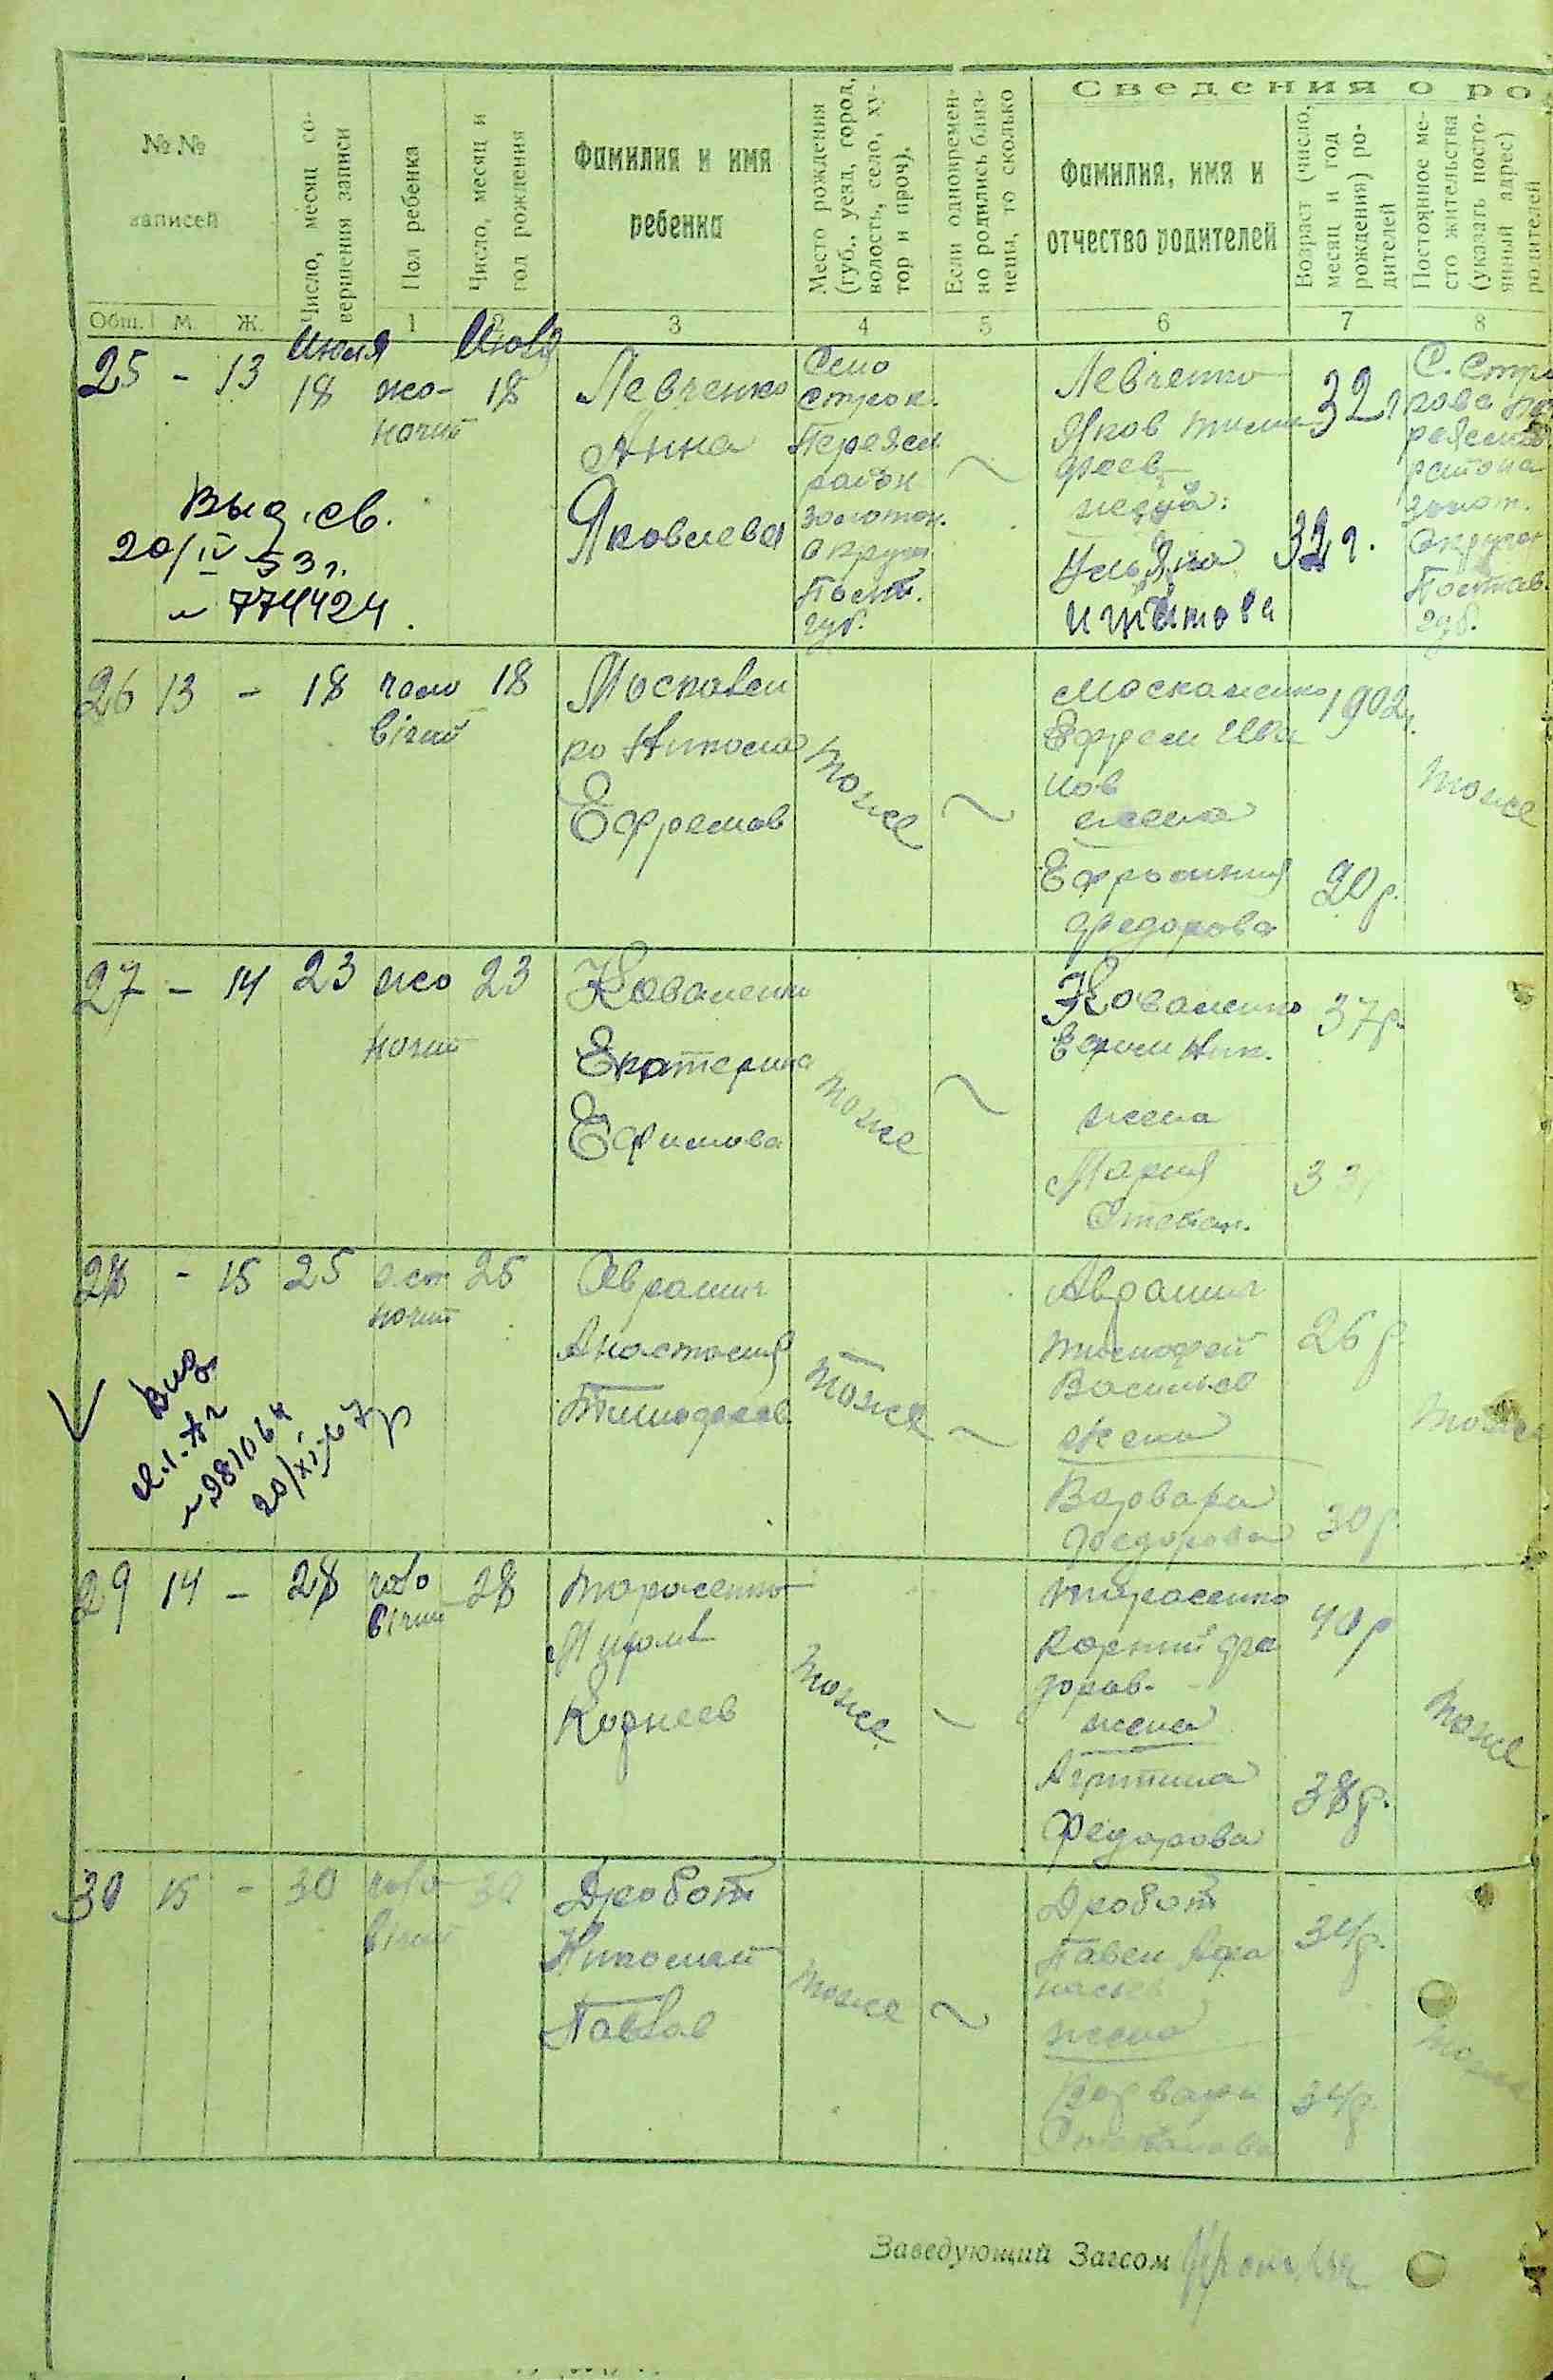 Сведения о ро
№ №
записей
Число, месяц со-
вершения записи
Пол ребенка
Число, месяц и
год рождения
Фамилия и имя
ребенка
Место рождения
(губ., уезд, город,
волость, село, ху-
тор и проч).
Если одновремен-
но родились близ-
нецы, то сколько
Фамилия, имя и
отчество родителей
Возраст (число,
месяц и год
рождения) ро-
дителей
Постоянное ме-
сто жительства
(указать посто-
янный адрес)
родителей
Общ. М. Ж. 1 3 4 5 6 7 8
25 - 13
Июля
18
жо-
ночий
18
Левченко
Анна
Яковлева
Село
Строк.
Переясл
район
Золотон.
округи
Полт.
губ.
Левченко
Яков Тимо
феев
жена:
Ульяна
32 г.
32 г.
С. Стро
кова Пе
реяслав
района
золот.
округи
Полтав.
губ.
Выд. св.
20/IV 53 г.
№ 774424.
26 13 - 18
чоло
вічий
18
Москален
ко Никола
Ефремов
тоже
Москаленко
Ефрем Ива
нов
жена
Ефросиния
Федорова
1902 г.
20 р.
тоже
27 - 14 23
жо
ночий
23
Коваленко
Екатерина
Ефимова
тоже
Коваленко
Ефим Ник.
жена
Мария
Степан.
37 р.
33
28 - 15 25
жо
ночий
25
Аврамич
Анастасия
Тимофеев.
тоже
Аврамич
Тимофей
Васильев
жена
Варвара
Федорова
26 р.
30 р.
тоже
29 14 - 28
чоло
вічий
28
Тарасенко
Корнеев
тоже
Тарасенко
Корний Фе
доров.
жена
Федорова
40 р
38 р.
тоже
30 15 - 30
чоло
вічий
30
Дробот
Николай
Павлов
тоже
Дробот
Павел Афа
насьев
жена
Варвара
Степанова
34 р.
34 р.
тоже
Заведующий Загсом